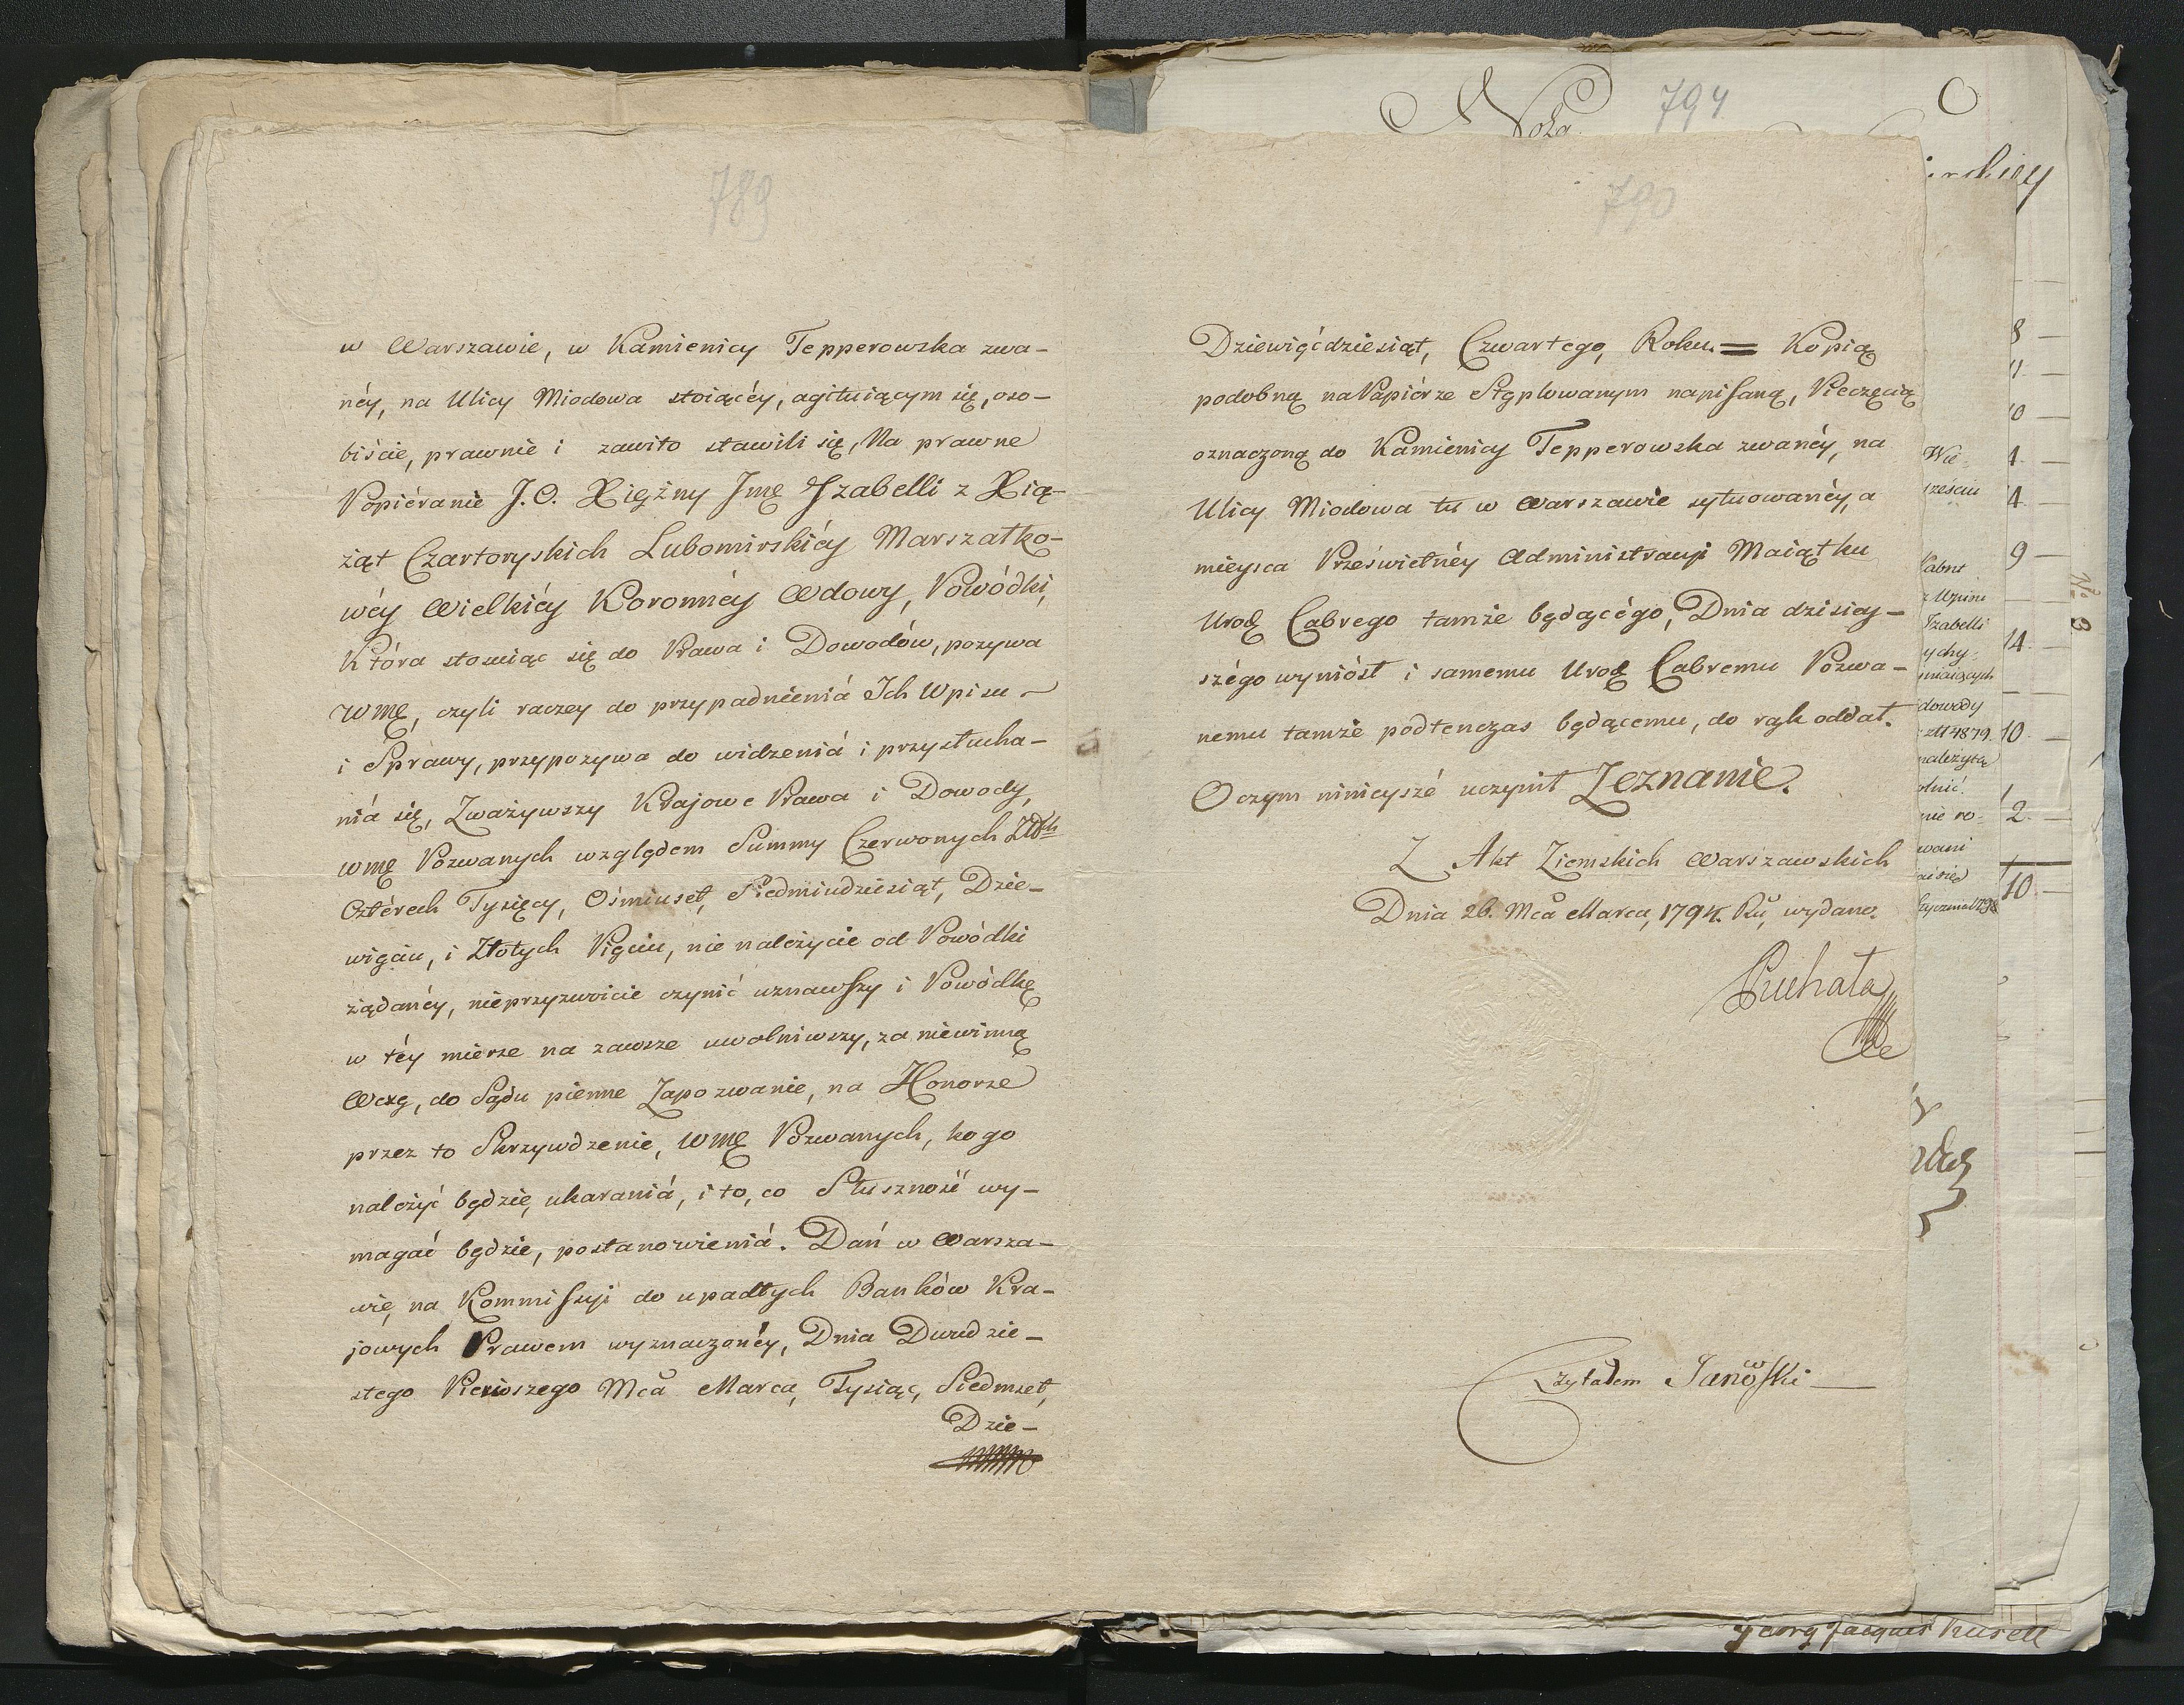 789
w Warszawie, w Kamienicy Tepperowska zwa-
néy, na Ulicy Miodowa stoiącéy, agituiącym się, oso-
biście, prawnie i zawito stawili się, Na prawne
Popiéranie J.O. Xiężny Jmę Jzabelli z Xią-
żąt Czartoryskich Lubomirskiéy Marszałko-
wéy Wielkiéy Koronnéy Wdowy, Powódki,
Która stosuiąc się do Prawa i Dowodów, pozywa
WMę, czyli raczey do przypadnieniá Ich Wpisu
i Sprawy, przypozywa do widzeniá i przysłucha-
niá się, Zważywszy Krajowe Prawa i Dowody,
WMę Pozwanych względem Summy Czerwonych Złłch
Cztérech Tysięcy, Ośmiuset, Siedmiudziesiąt, Dzie-
więciu, i Złotych Pięciu, nie należycie od Powódki
żądanéy, nieprzyzwoicie czynić uznawszy i Powódkę
w téy mierze na zawsze uwolniwszy, za niewinną
Werę, do Sądu pienne Zapozwanie, na Honorze
przez to Skrzywdzenie, WMę Pozwanych, kogo
należyć będzie, ukaraniá, i to, co Słuszność wy-
magać będzie, postanowieniá. Dań w Warsza-
wie, na Kommissyi do upadłych Banków Kra-
jowych Prawem wyznaczonéy, Dnia Dwudzie-
stego Pierwszego Mca Marca, Tysiąc, Siedmset,
Dzie-
790
Dziewięćdziesiąt, Czwartego, Roku. = Kopią
podobną na Papiérze Stęplowanym napisaną, Pieczęcią
oznaczoną do Kamienicy Tepperowska zwanéy, na
Ulicy Miodowa tu w Warszawie sytuowanéy, a
mieysca Prześwietnéy Administracyi Maiątku
Urodz Cabrego tamże będącégo, Dnia dzisiey-
szégo wyniósł i samemu Urodz Cabremu Pozwa-
nemu tamże podtenczas będącemu, do rąk oddał.
O czym ninieyszé uczynił Zeznanie.
Z Akt Ziemskich Warszawskich
Dnia 26. Mca Marca, 1794. Ru, wydano.
Puchała
Czytałem Janowski
794
Nota
8
11
10
Wie-
1
4
9
Cabrt
z Wpisu
Izabelli
14
dowody
10
należytą
2
nie ro-
wani
10
No 3
Georg Jacques